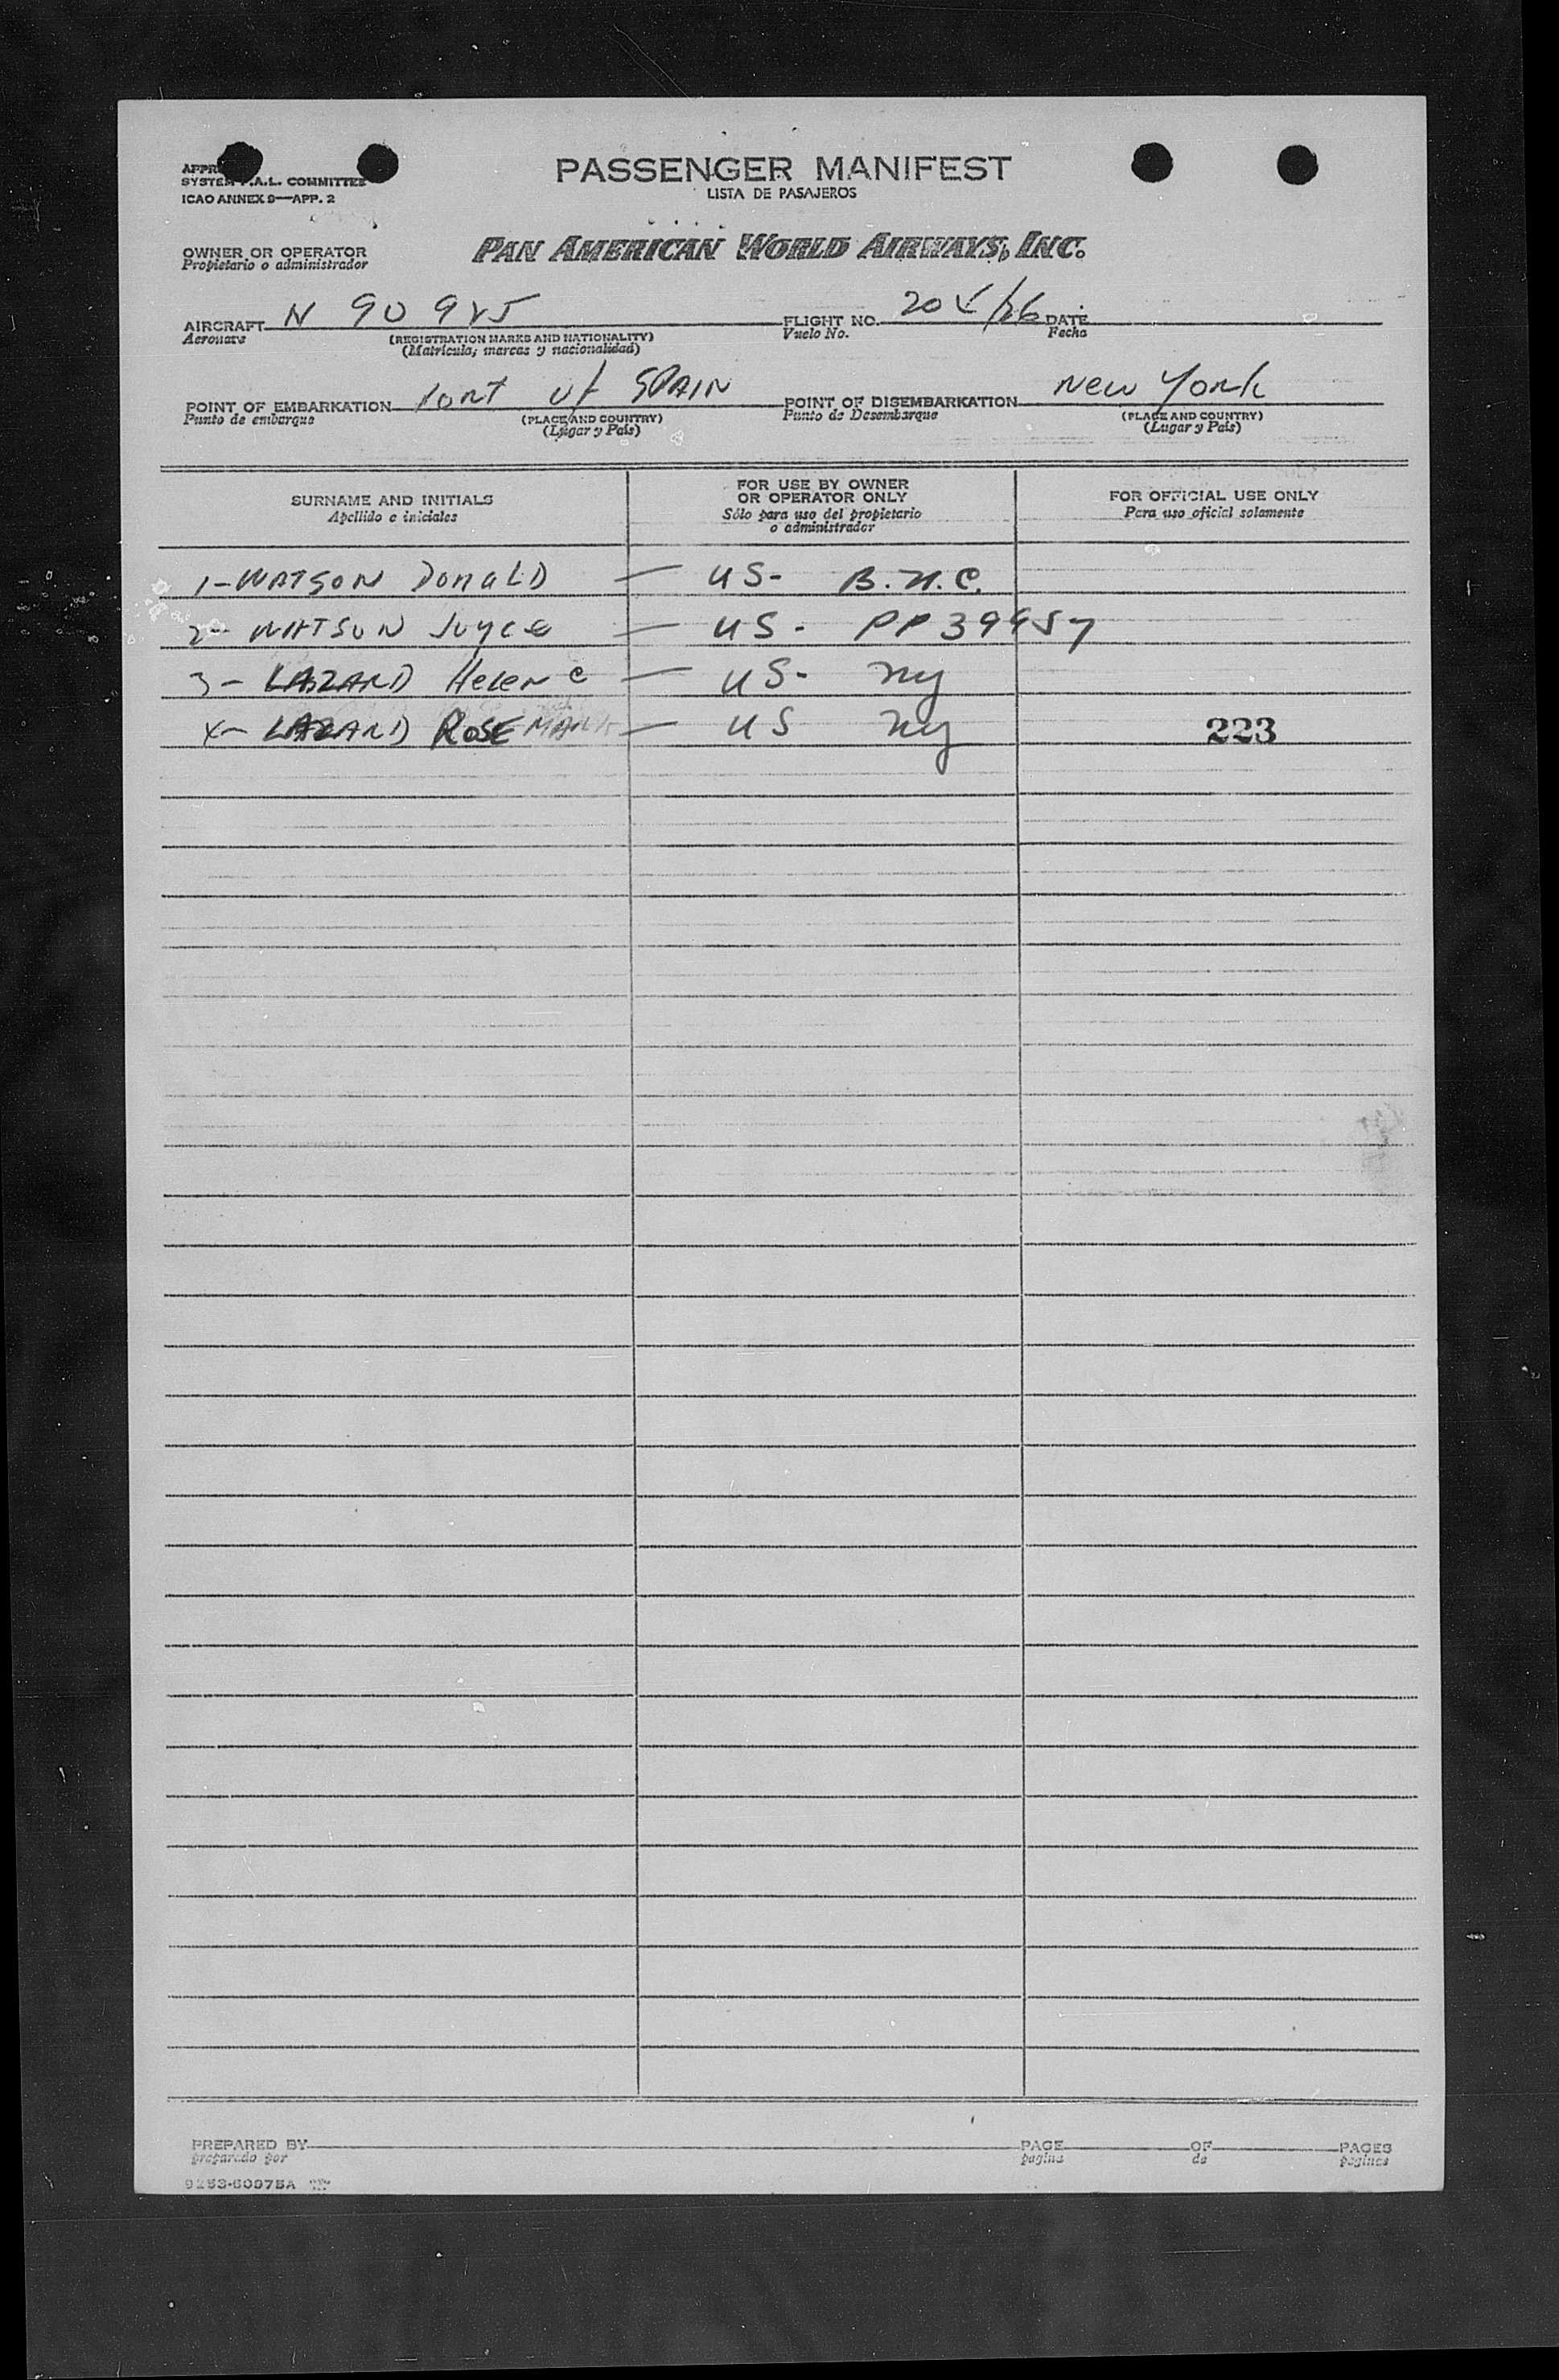 PASSENGER MANIFEST
LISTA DE PASAJEROS
SYSTEM F.A.L. COMMITTEE
ICAO ANNEX 9—APP. 2
OWNER OR OPERATOR
Propietario o administrador
PAN AMERICAN WORLD AIRWAYS, INC.
AIRCRAFT N 90 925 FLIGHT NO. 204/26 DATE
Aeronave (REGISTRATION MARKS AND NATIONALITY) Vuelo No. Fecha
(Matrícula, marcas y nacionalidad)
POINT OF EMBARKATION Port of SPAIN POINT OF DISEMBARKATION New York
Punto de embarque (PLACE AND COUNTRY) Punto de Desembarque (PLACE AND COUNTRY)
(Lugar y País) (Lugar y País)
SURNAME AND INITIALS
Apellido e iniciales
FOR USE BY OWNER
OR OPERATOR ONLY
Sólo para uso del propietario
o administrador
FOR OFFICIAL USE ONLY
Para uso oficial solamente
1- WATSON DonalD — US- B.N.C.
2- WATSON Joyce — US- PP 39957
3- LAZARD Helen C — US- Ny
4- LAZARD ROSE MARIE — US Ny 223
PREPARED BY PAGE OF PAGES
preparado por pagina de paginas
9253-60975A